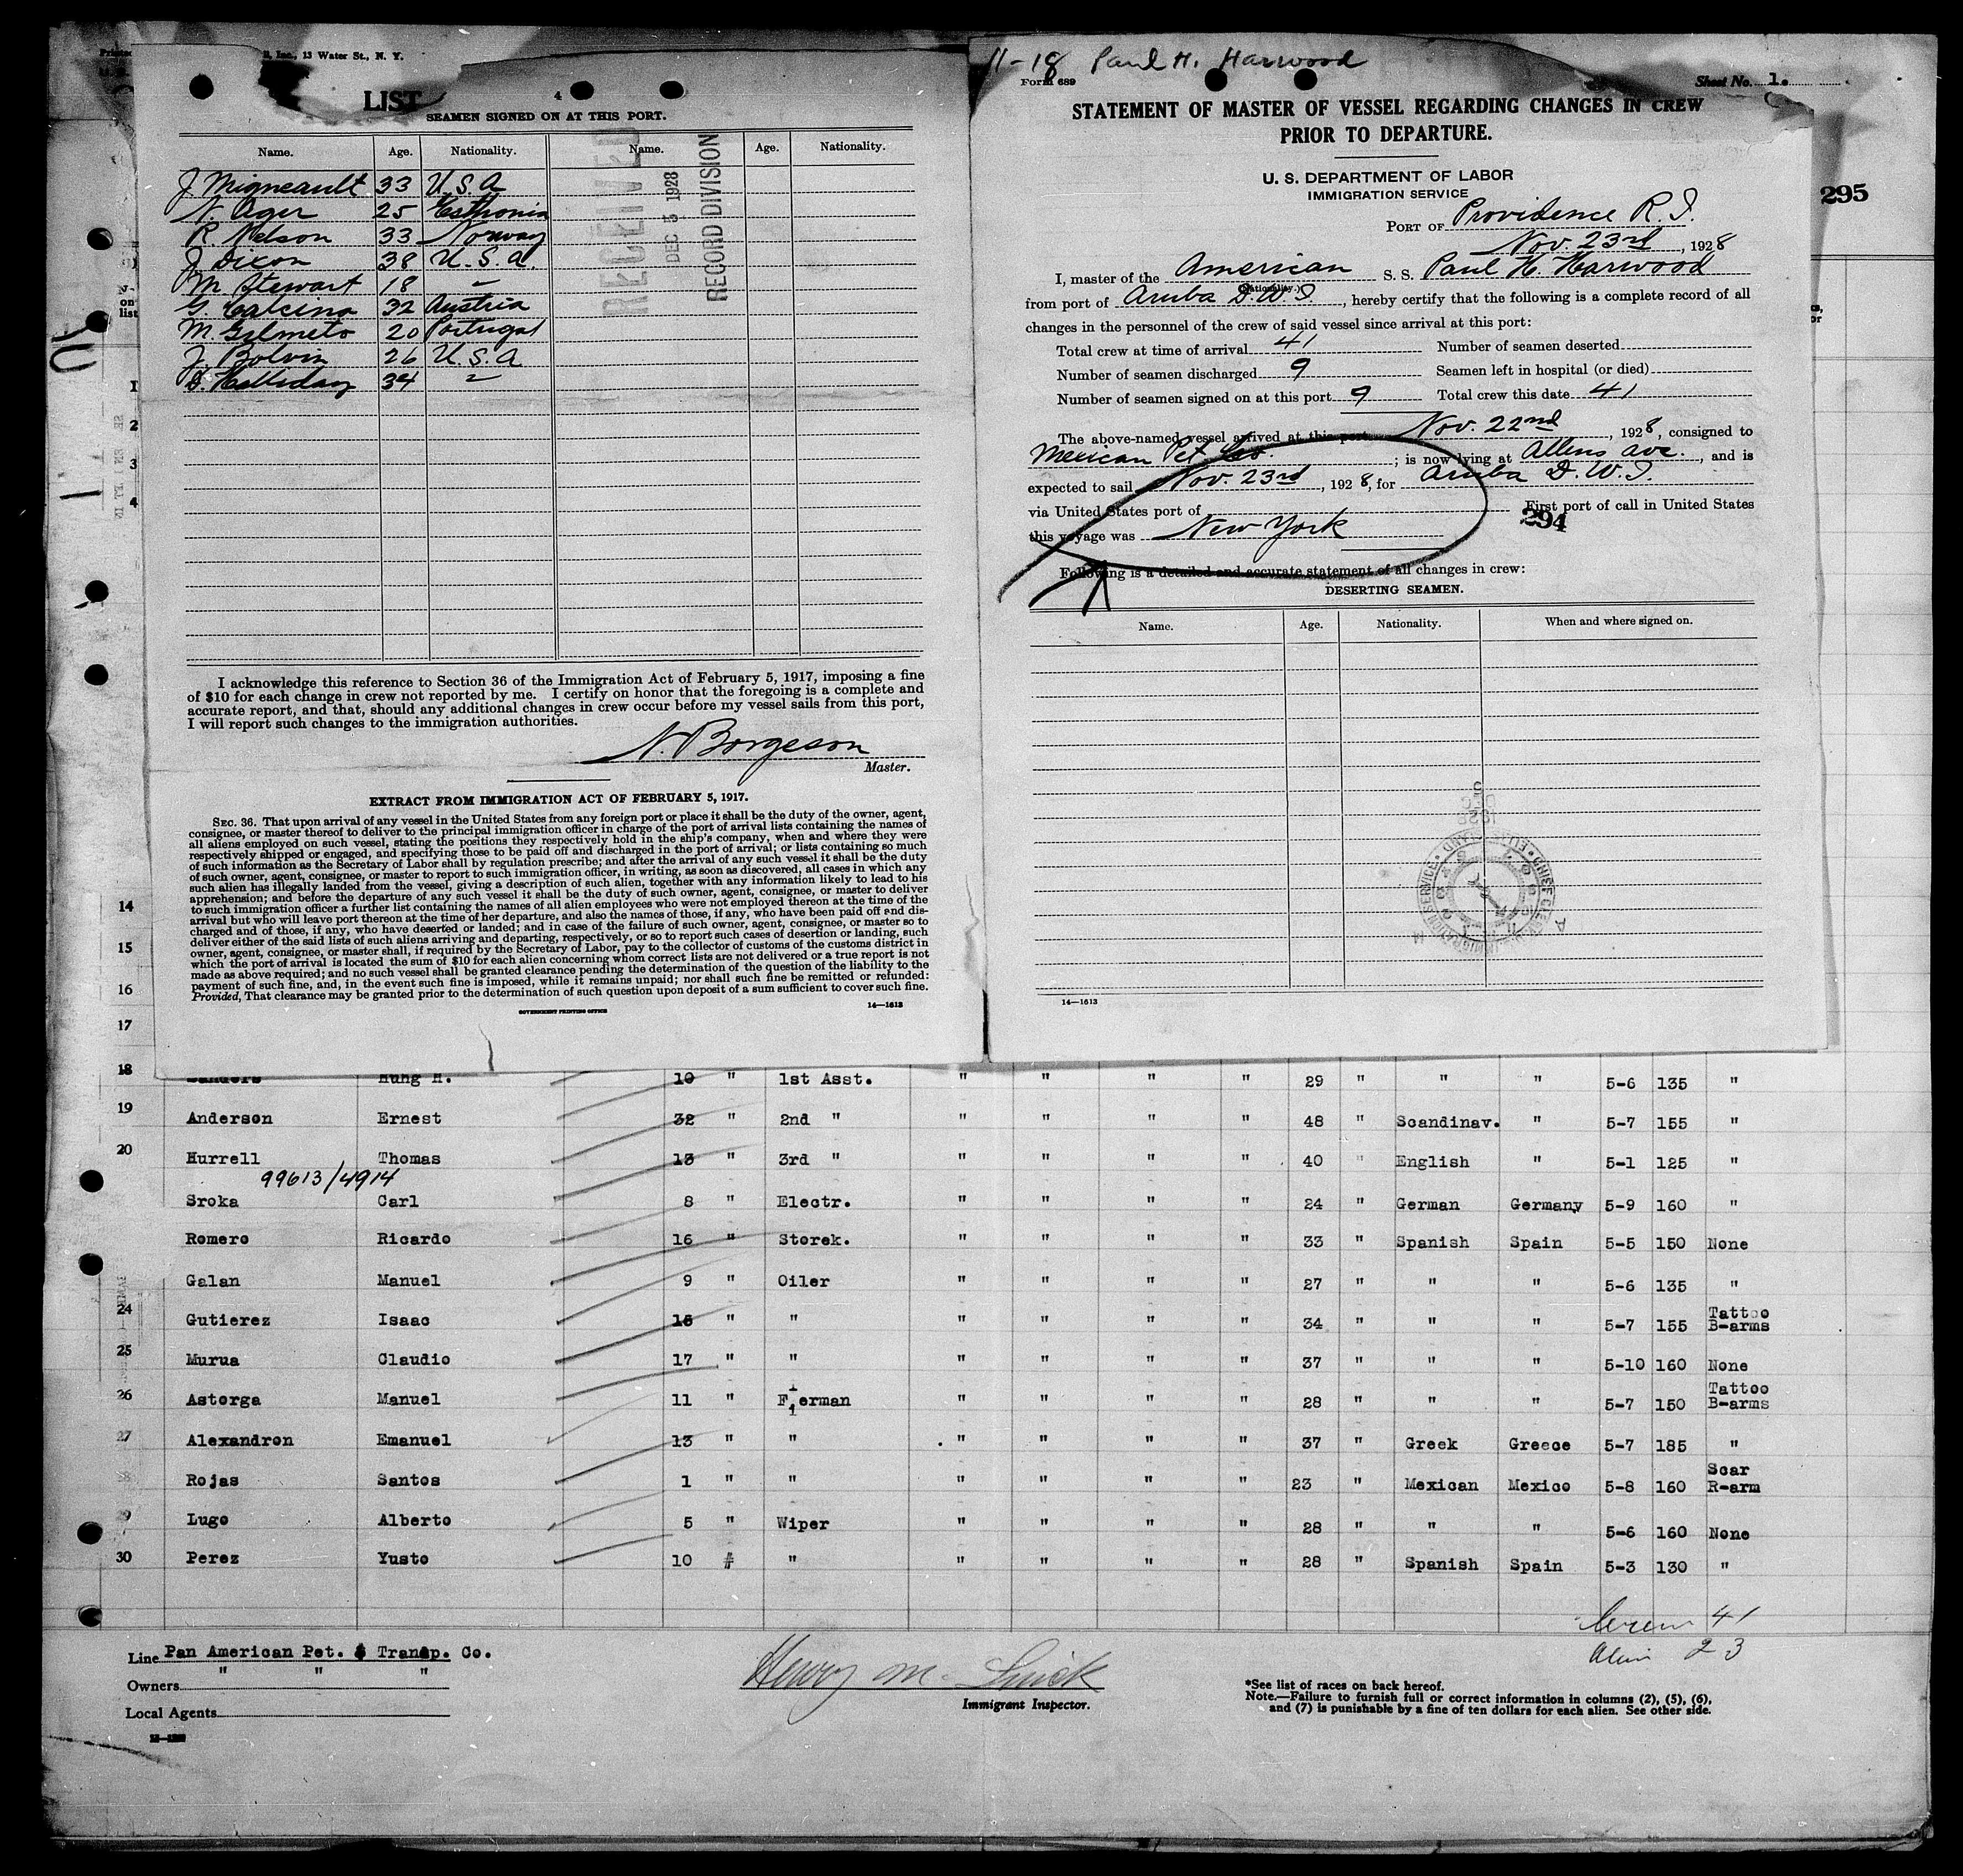 Inc., 13 Water St., N. Y.
LIST
4
SEAMEN SIGNED ON AT THIS PORT.
Name. Age. Nationality. Name. Age. Nationality.
J Migneault 33 U.S.A
N. Ager 25 Esthonia
R. Nelson 33 Norway
J. Dixon 38 U.S.a.
M Stewart 18 "
G. Calcina 32 Austria
M. Gelmeto 20 Portugal
J. Bolvin 26 U.S.A
Halliday 34 "
RECEIVED
DEC 3 1928
RECORD DIVISION
I acknowledge this reference to Section 36 of the Immigration Act of February 5, 1917, imposing a fine
of $10 for each change in crew not reported by me. I certify on honor that the foregoing is a complete and
accurate report, and that, should any additional changes in crew occur before my vessel sails from this port,
I will report such changes to the immigration authorities.
N. Borgeson
Master.
EXTRACT FROM IMMIGRATION ACT OF FEBRUARY 5, 1917.
SEC. 36. That upon arrival of any vessel in the United States from any foreign port or place it shall be the duty of the owner, agent,
consignee, or master thereof to deliver to the principal immigration officer in charge of the port of arrival lists containing the names of
all aliens employed on such vessel, stating the positions they respectively hold in the ship's company, when and where they were
respectively shipped or engaged, and specifying those to be paid off and discharged in the port of arrival; or lists containing so much
of such information as the Secretary of Labor shall by regulation prescribe; and after the arrival of any such vessel it shall be the duty
of such owner, agent, consignee, or master to report to such immigration officer, in writing, as soon as discovered, all cases in which any
such alien has illegally landed from the vessel, giving a description of such alien, together with any information likely to lead to his
apprehension; and before the departure of any such vessel it shall be the duty of such owner, agent, consignee, or master to deliver
to such immigration officer a further list containing the names of all alien employees who were not employed thereon at the time of the
arrival but who will leave port thereon at the time of her departure, and also the names of those, if any, who have been paid off and dis-
charged and of those, if any, who have deserted or landed; and in case of the failure of such owner, agent, consignee, or master so to
deliver either of the said lists of such aliens arriving and departing, respectively, or so to report such cases of desertion or landing, such
owner, agent, consignee, or master shall, if required by the Secretary of Labor, pay to the collector of customs of the customs district in
which the port of arrival is located the sum of $10 for each alien concerning whom correct lists are not delivered or a true report is not
made as above required; and no such vessel shall be granted clearance pending the determination of the question of the liability to the
payment of such fine, and, in the event such fine is imposed, while it remains unpaid; nor shall such fine be remitted or refunded:
Provided, That clearance may be granted prior to the determination of such question upon deposit of a sum sufficient to cover such fine.
GOVERNMENT PRINTING OFFICE
14—1613
11-18 Paul H. Harwood
Form 689
Sheet No. 1.
STATEMENT OF MASTER OF VESSEL REGARDING CHANGES IN CREW
PRIOR TO DEPARTURE.
U. S. DEPARTMENT OF LABOR
IMMIGRATION SERVICE
295
PORT OF Providence R.I.
Nov. 23rd, 1928
I, master of the American S. S. Paul H. Harwood
(Nationality.)
from port of Aruba D.W.I., hereby certify that the following is a complete record of all
changes in the personnel of the crew of said vessel since arrival at this port:
Total crew at time of arrival 41 Number of seamen deserted
Number of seamen discharged 9 Seamen left in hospital (or died)
Number of seamen signed on at this port 9 Total crew this date 41
The above-named vessel arrived at this port Nov. 22nd, 1928, consigned to
Mexican Pet Co.; is now lying at Allens ave., and is
expected to sail Nov. 23rd, 1928, for Aruba D.W.I.
via United States port of First port of call in United States
294
this voyage was New York
Following is a detailed and accurate statement of all changes in crew:
DESERTING SEAMEN.
Name. Age. Nationality. When and where signed on.
14—1613
1
2
3
4
14
15
16
17
18 Sanders Hung H. 10 " 1st Asst. " " " " 29 " " " 5-6 135 "
19 Anderson Ernest 32 " 2nd " " " " " 48 " Scandinav. " 5-7 155 "
20 Hurrell Thomas 13 " 3rd " " " " " 40 " English " 5-1 125 "
99613/4914
Sroka Carl 8 " Electr. " " " " 24 " German Germany 5-9 160 "
Romero Ricardo 16 " Storek. " " " " 33 " Spanish Spain 5-5 150 None
Galan Manuel 9 " Oiler " " " " 27 " " " 5-6 135 "
24 Gutierez Isaac 15 " " " " " " 34 " " " 5-7 155 Tattoo B-arms
25 Murua Claudio 17 " " " " " " 37 " " " 5-10 160 None
26 Astorga Manuel 11 " Fierman " " " " 28 " " " 5-7 150 Tattoo B-arms
27 Alexandron Emanuel 13 " " " " " " 37 " Greek Greece 5-7 185 "
28 Rojas Santos 1 " " " " " " 23 " Mexican Mexico 5-8 160 Scar R-arm
29 Lugo Alberto 5 " Wiper " " " " 28 " " " 5-6 160 None
30 Perez Yusto 10 " " " " " " 28 " Spanish Spain 5-3 130 "
41
23
Line Pan American Pet. & Transp. Co.
" " "
Owners
Local Agents
Henry M.
Immigrant Inspector.
*See list of races on back hereof.
Note.—Failure to furnish full or correct information in columns (2), (5), (6),
and (7) is punishable by a fine of ten dollars for each alien. See other side.